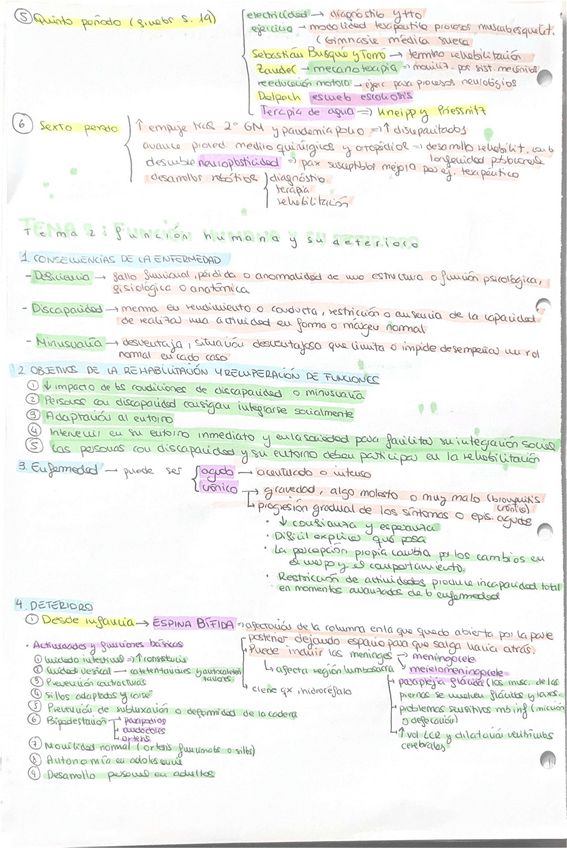 ⑤ Quinto periodo (s.
electricidad → diagnóstico y tto
ejercicio → modalidad terapéutica procesos musculoesquelét.
(Gimnasia médica sueca
Sebastián Busqué y Torró → término rehabilitación
Zander → mecanoterapia → moviliz. por sist. mecánicos
reeducación motora → ejerc para procesos neurológicos
Delpech escuela escoliosis
Terapia de agua ⇒ Kneipp y Priessnitz
⑥ Sexto periodo
↑ empuje tras 2ª GM y pandemia polio ⇒ ↑ discapacitados
avance proced. médico quirúrgicos y ortopédicos ⇒ desarrollo rehabilit.
longevidad poblacional
descubre neuroplasticidad ⇒ pax susceptibles mejora por ej. terapéutico
desarrollos robóticos
diagnóstico
terapia
rehabilitación
Tema 2: función humana y su deterioro
1. CONSECUENCIAS DE LA ENFERMEDAD
- Deficiencia → fallo funcional, pérdida o anormalidad de una estructura o función psicológica,
fisiológica o anatómica.
- Discapacidad → merma en rendimiento o conducta, restricción o ausencia de la capacidad
de realizar una actividad en forma o margen normal
- Minusvalía → desventaja, situación desventajosa que limita o impide desempeñar un rol
normal en cada caso
2. OBJETIVOS DE LA REHABILITACIÓN Y RECUPERACIÓN DE FUNCIONES
① ↓ impacto de las condiciones de discapacidad o minusvalía
② Personas con discapacidad consigan integrarse socialmente
③ Adaptación al entorno
④ Intervenir en su entorno inmediato y en la sociedad para facilitar su integración social
⑤ Las personas con discapacidad y su entorno deben participar en la rehabilitación
3. Enfermedad → puede ser
agudo → acentuado o intenso
crónico → gravedad, algo molesto o muy malo (bronquitis crónica)
↳ progresión gradual de los síntomas o epis. agudos
· ↓ confianza y esperanza
· Difícil explicar qué pasa
· La percepción propia cambia por los cambios en
el cuerpo y el comportamiento.
· Restricción de actividades produce incapacidad total
en momentos avanzados de la enfermedad
4. DETERIORO
① Desde infancia → ESPINA BÍFIDA ⇒ afectación de la columna en la que queda abierta por la parte
posterior dejando espacio para que salga hacia atrás.
↳ Puede incluir las meninges → meningocele
↳ afecta región lumbosacra → mielomeningocele
↳ clene qx hidrocefalo
→ paraplejia fláccida (los musc. de las
piernas se vuelven fláccidos y
→ problemas sensitivos mbinf (micción
y defecación)
↳ ↑ vol LCR y dilatación ventrículos
cerebrales
· Actividades y funciones básicas
① intestinal ⇒ ↑ constancia
② vesical →
③ Prevención contracturas
④ Sillas adaptadas y corsé
⑤ Prevención de subluxación o deformidad de la cadera
⑥ Bipedestación → parapodios
→ andadores
→ ortesis
⑦ Movilidad normal (ortesis funcionales o sillas)
⑧ Autonomía en adolescencia
⑨ Desarrollo personal en adultos